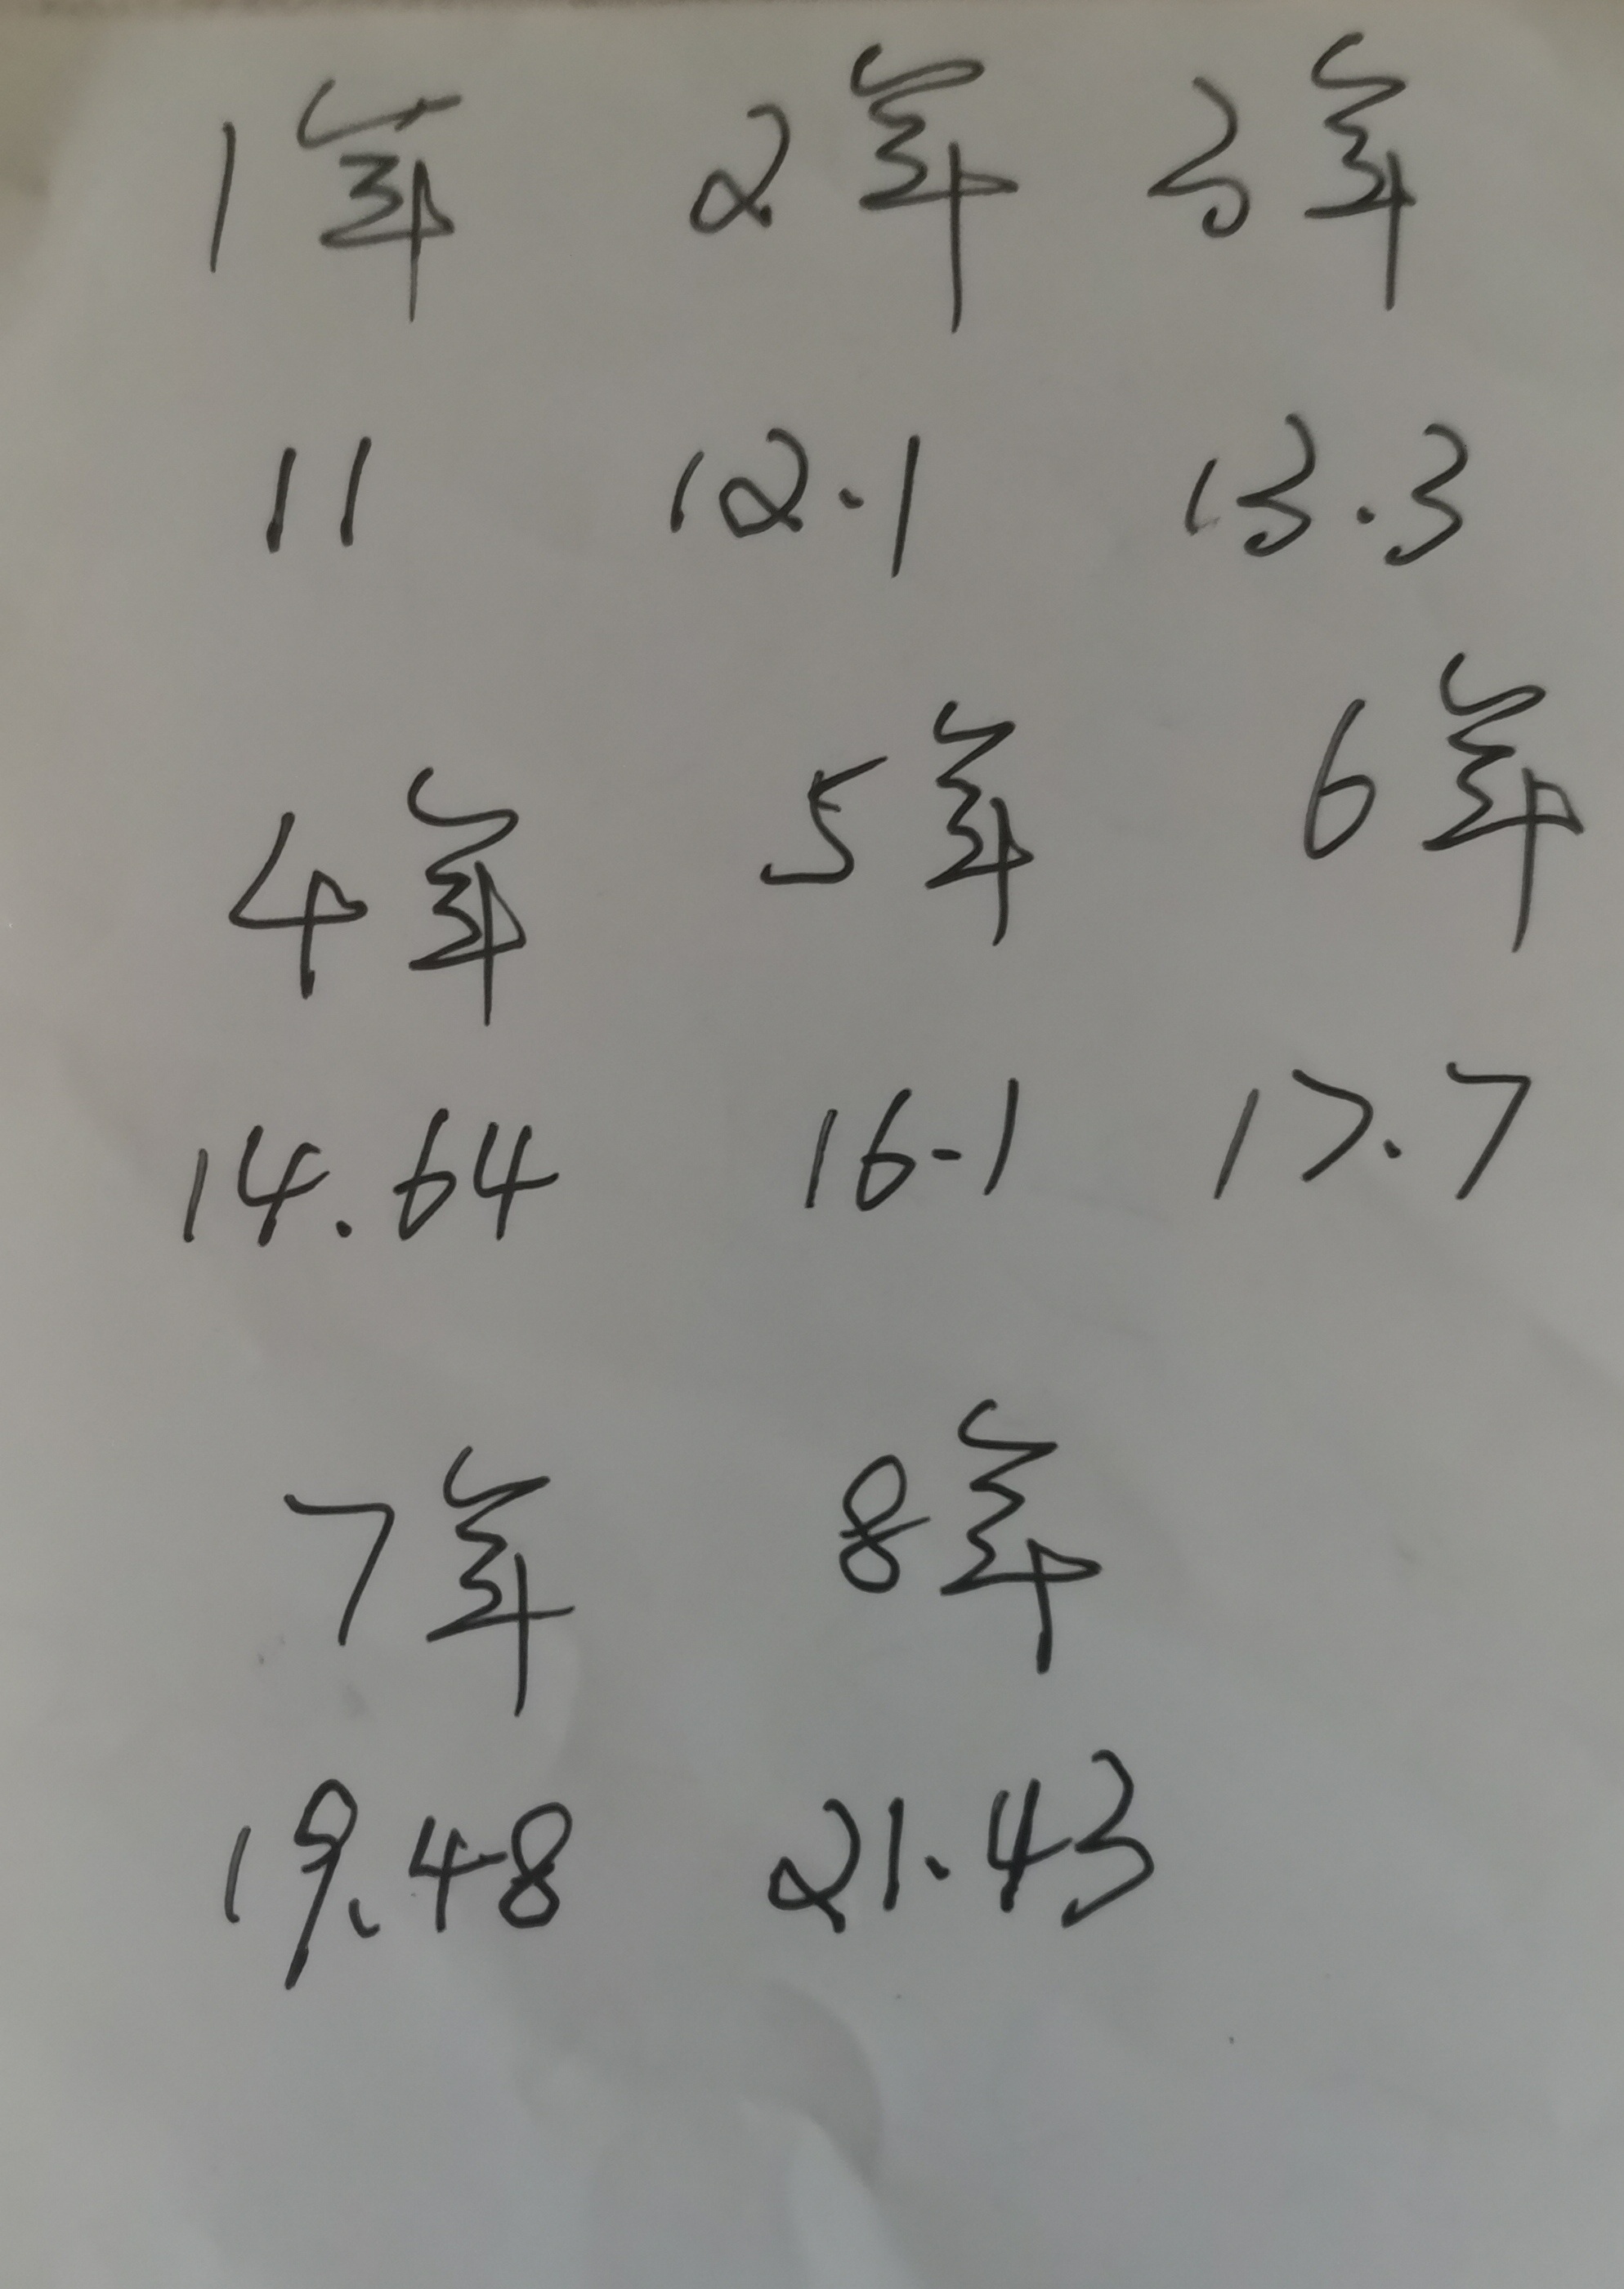 1年 2年 3年
11 12.1 13.3
4年 5年 6年
14.64 16.1 17.7
7年 8年
19.48 21.43